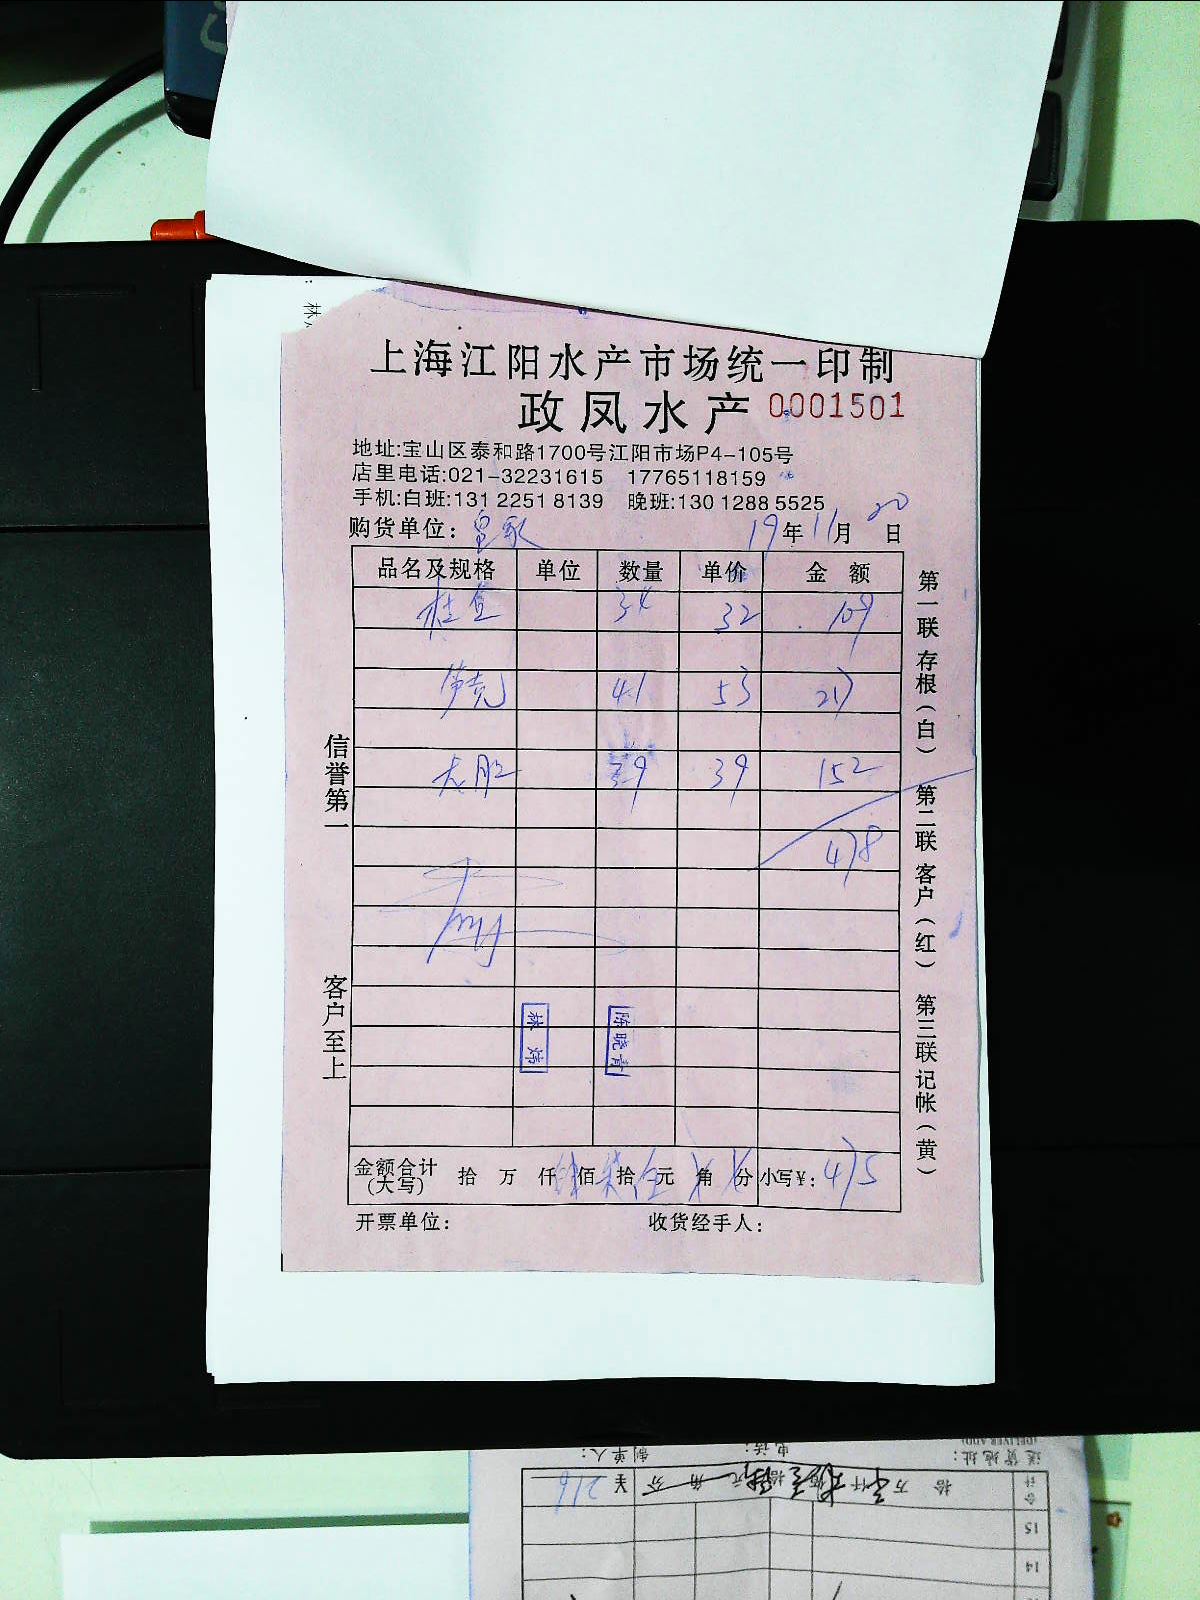 上海江阳水产市场统一印制
政凤水产 0001501
地址:宝山区泰和路1700号江阳市场P4-105号
店里电话:021-32231615 17765118159
手机:白班:131 2251 8139 晚班:130 1288 5525
购货单位: 19年11月20日
品名及规格 单位 数量 单价 金额
桂鱼 34 32 109
笋壳 41 53 217
39 39 152
478
林炜 陈晓青
金额合计(大写) 拾 万 仟 肆佰 柒拾 伍元 角 分 小写¥: 475
开票单位: 收货经手人:
信誉第一 客户至上
第一联存根(白) 第二联客户(红) 第三联记帐(黄)
林
送货地址: 电话: 制单人:
(DELIVER ADD)
合计 拾 万 仟 佰 拾 元 角 分 ¥ 216
15
14